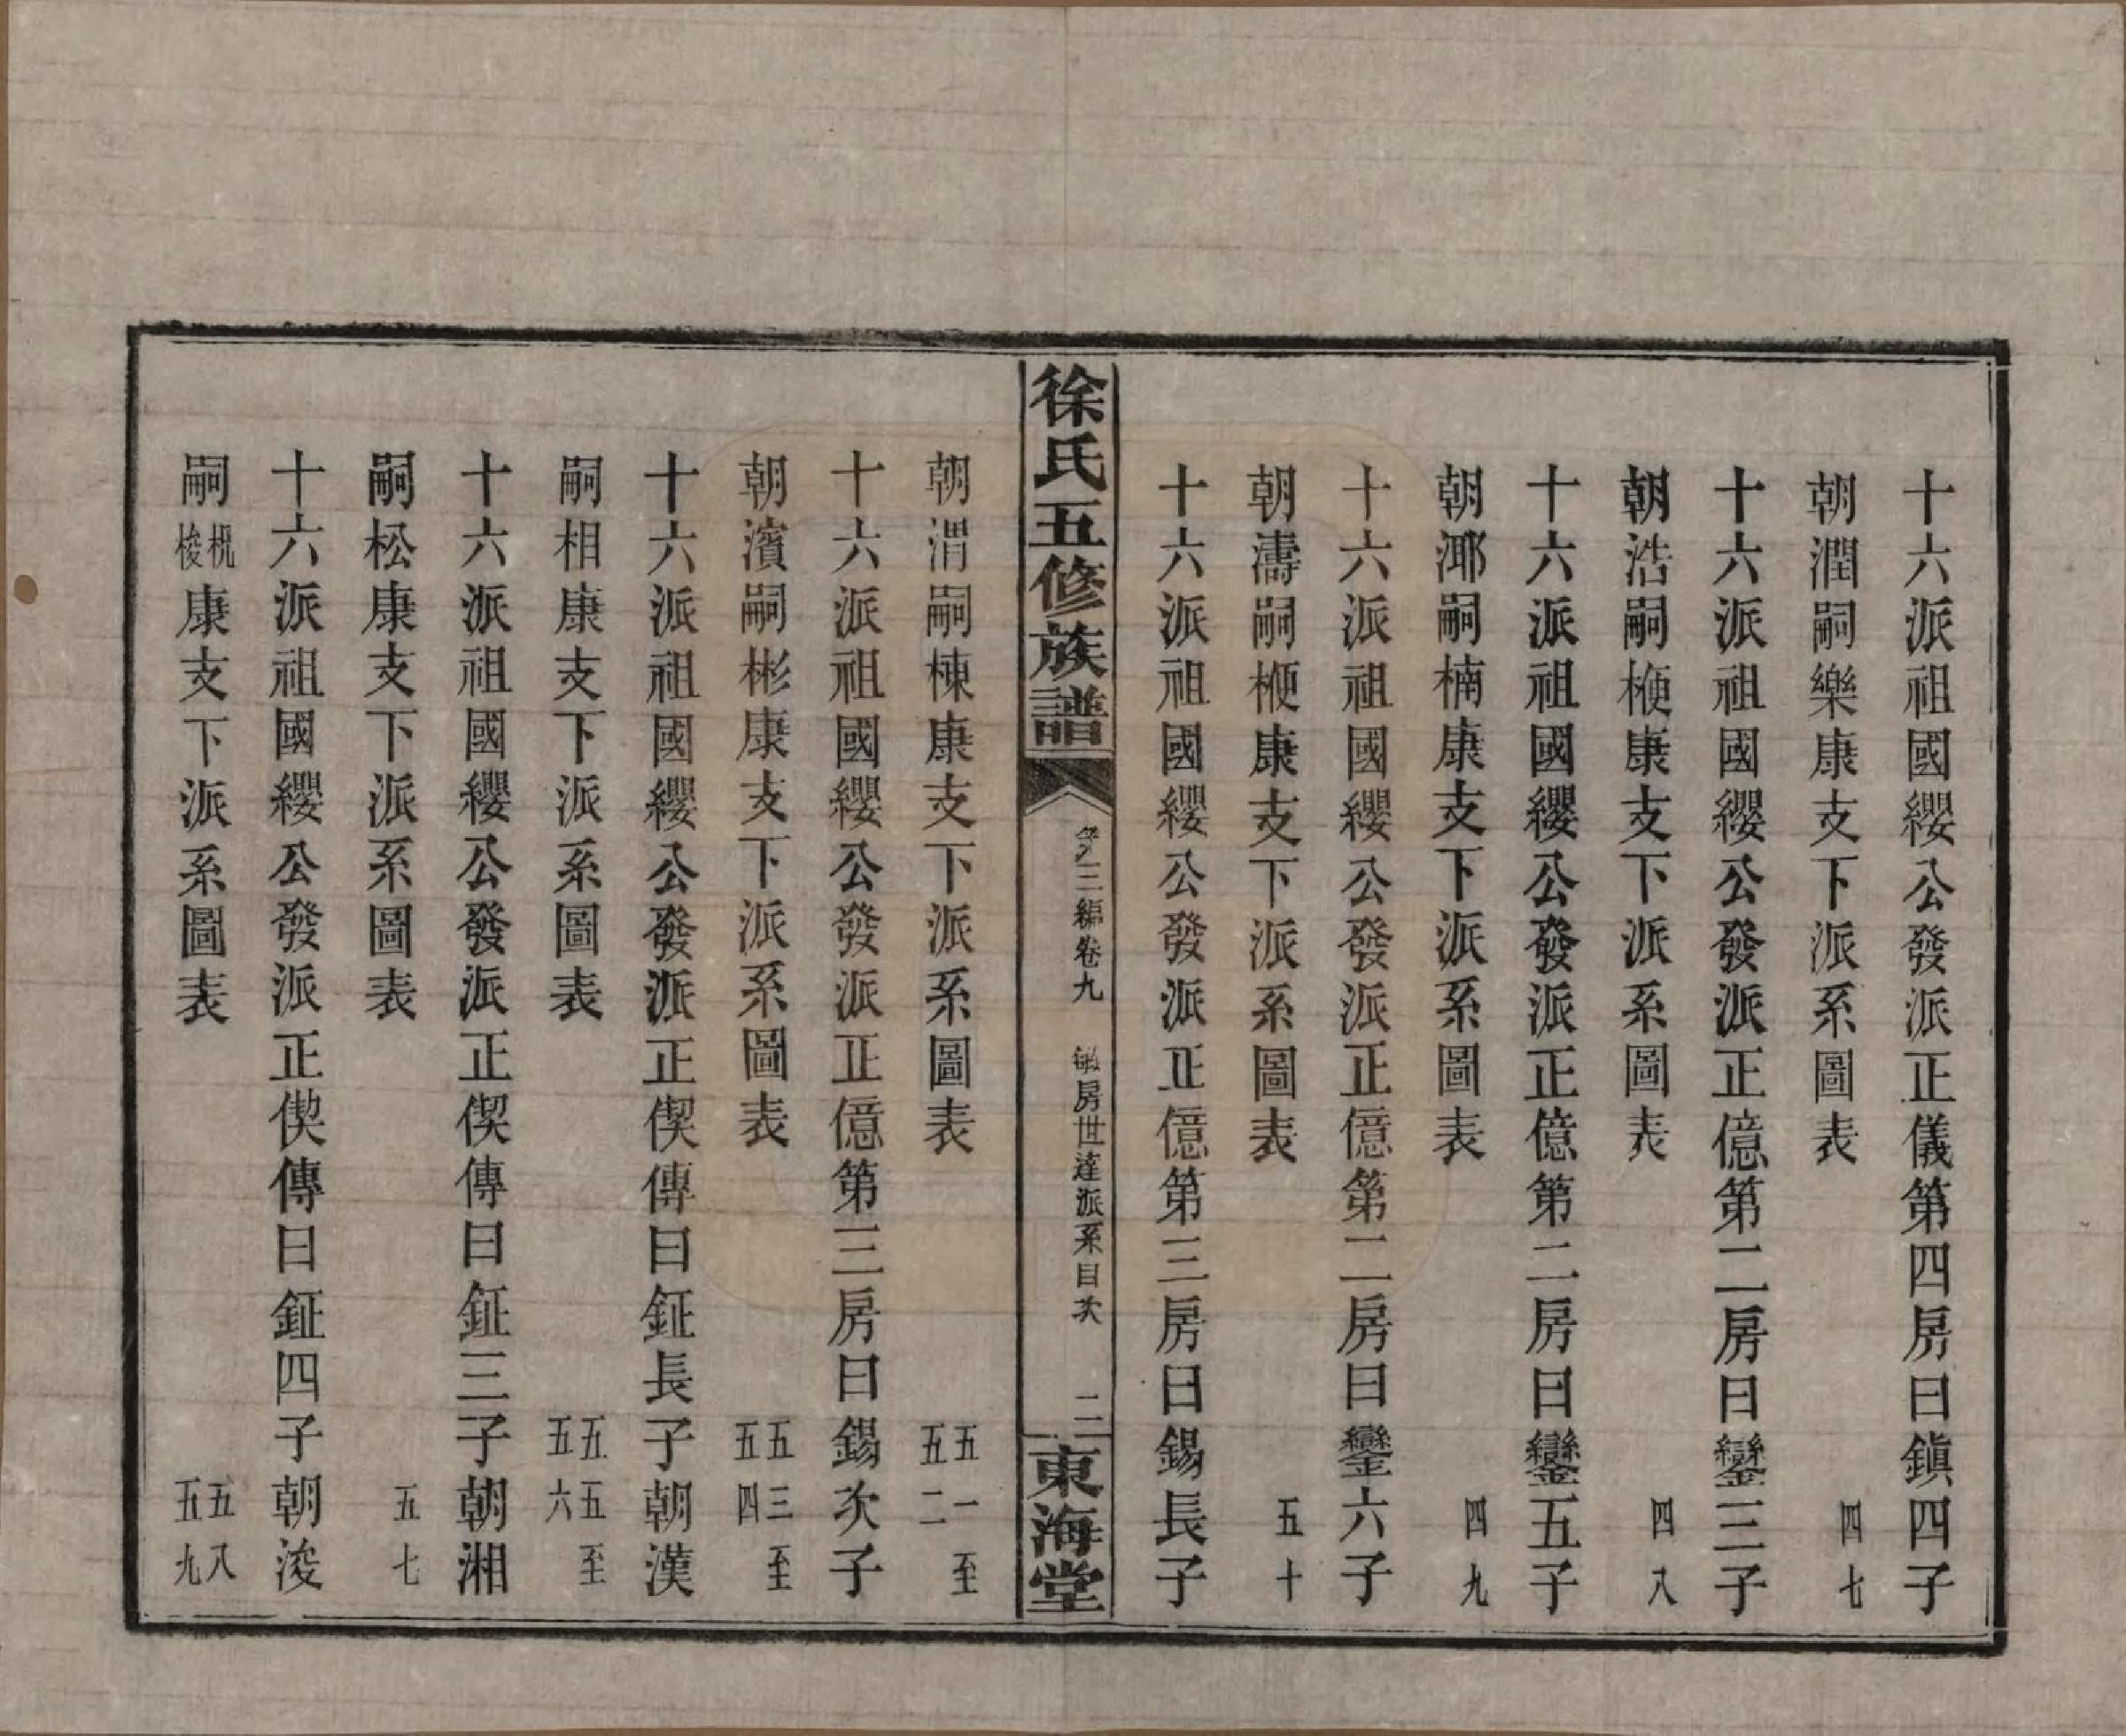 十六派祖國纓公發派正儀第四房曰鎭四子
朝潤嗣樂康支下派系圖表 四七
十六派祖國纓公發派正億第二房曰鑾三子
朝浩嗣楩康支下派系圖表 四八
十六派祖國纓公發派正億第二房曰鑾五子
朝溮嗣楠康支下派系圖表 四九
十六派祖國纓公發派正億第二房曰鑾六子
朝濤嗣楩康支下派系圖表 五十
十六派祖國纓公發派正億第三房曰錫長子
徐氏五修族譜
第三編卷九 敏房世達派系目次 二
東海堂
朝渭嗣棟康支下派系圖表 五一至五二
十六派祖國纓公發派正億第三房曰錫次子
朝濱嗣彬康支下派系圖表 五三至五四
十六派祖國纓公發派正偰傳曰鉦長子朝漢
嗣相康支下派系圖表 五五至五六
十六派祖國纓公發派正偰傳曰鉦三子朝湘
嗣松康支下派系圖表 五七
十六派祖國纓公發派正偰傳曰鉦四子朝浚
嗣梭康支下派系圖表 五八五九